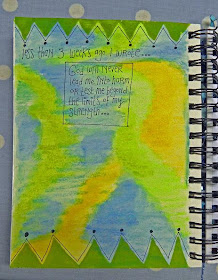 less than 3 weeks ago I wrote...
God will NEVER
lead me into harm
or test me beyond
the limits of my
strength...